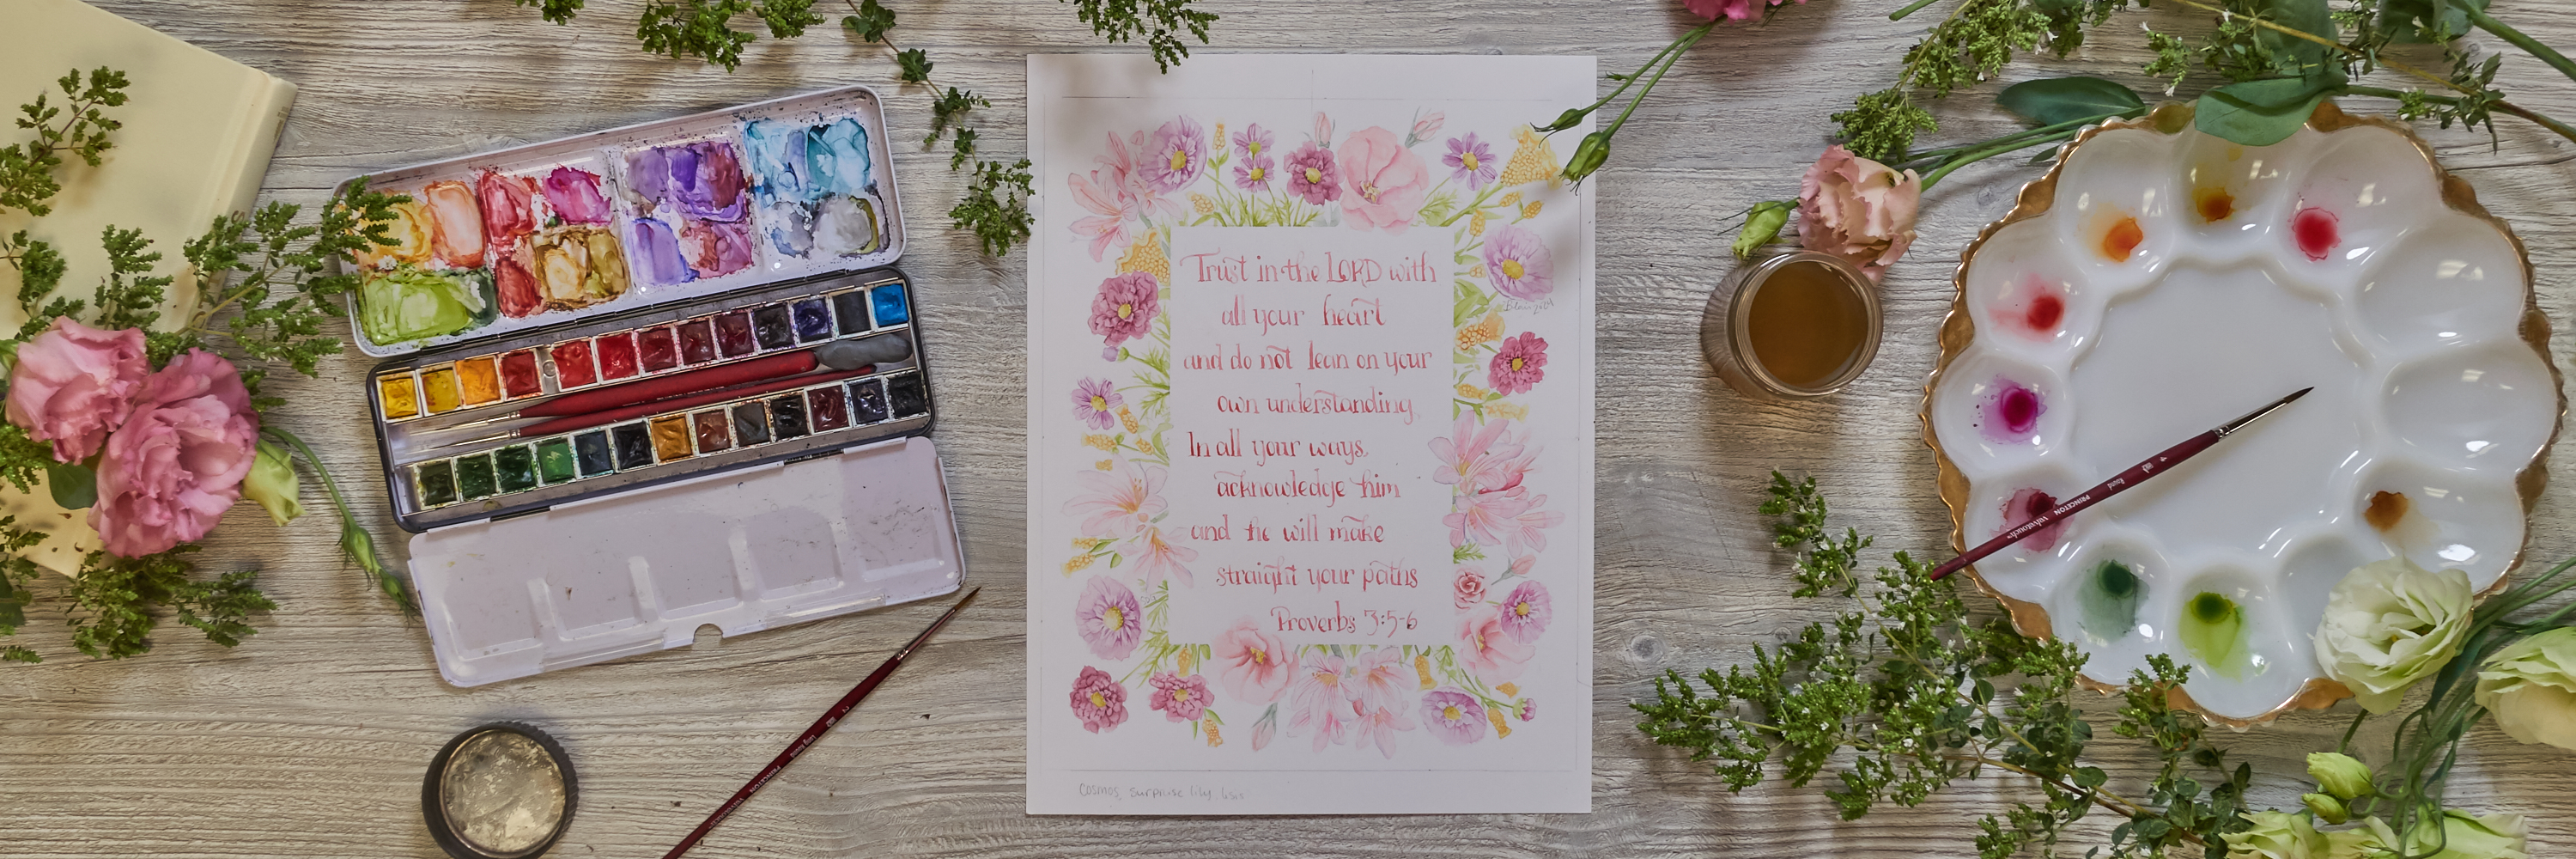 Trust in the LORD with
all your heart
and do not lean on your
own understanding
In all your ways,
acknowledge him
and he will make
straight your paths
Proverbs 3:5-6
Cosmos, surprise lily,
PRINCETON
Round
PRINCETON Velvetouch